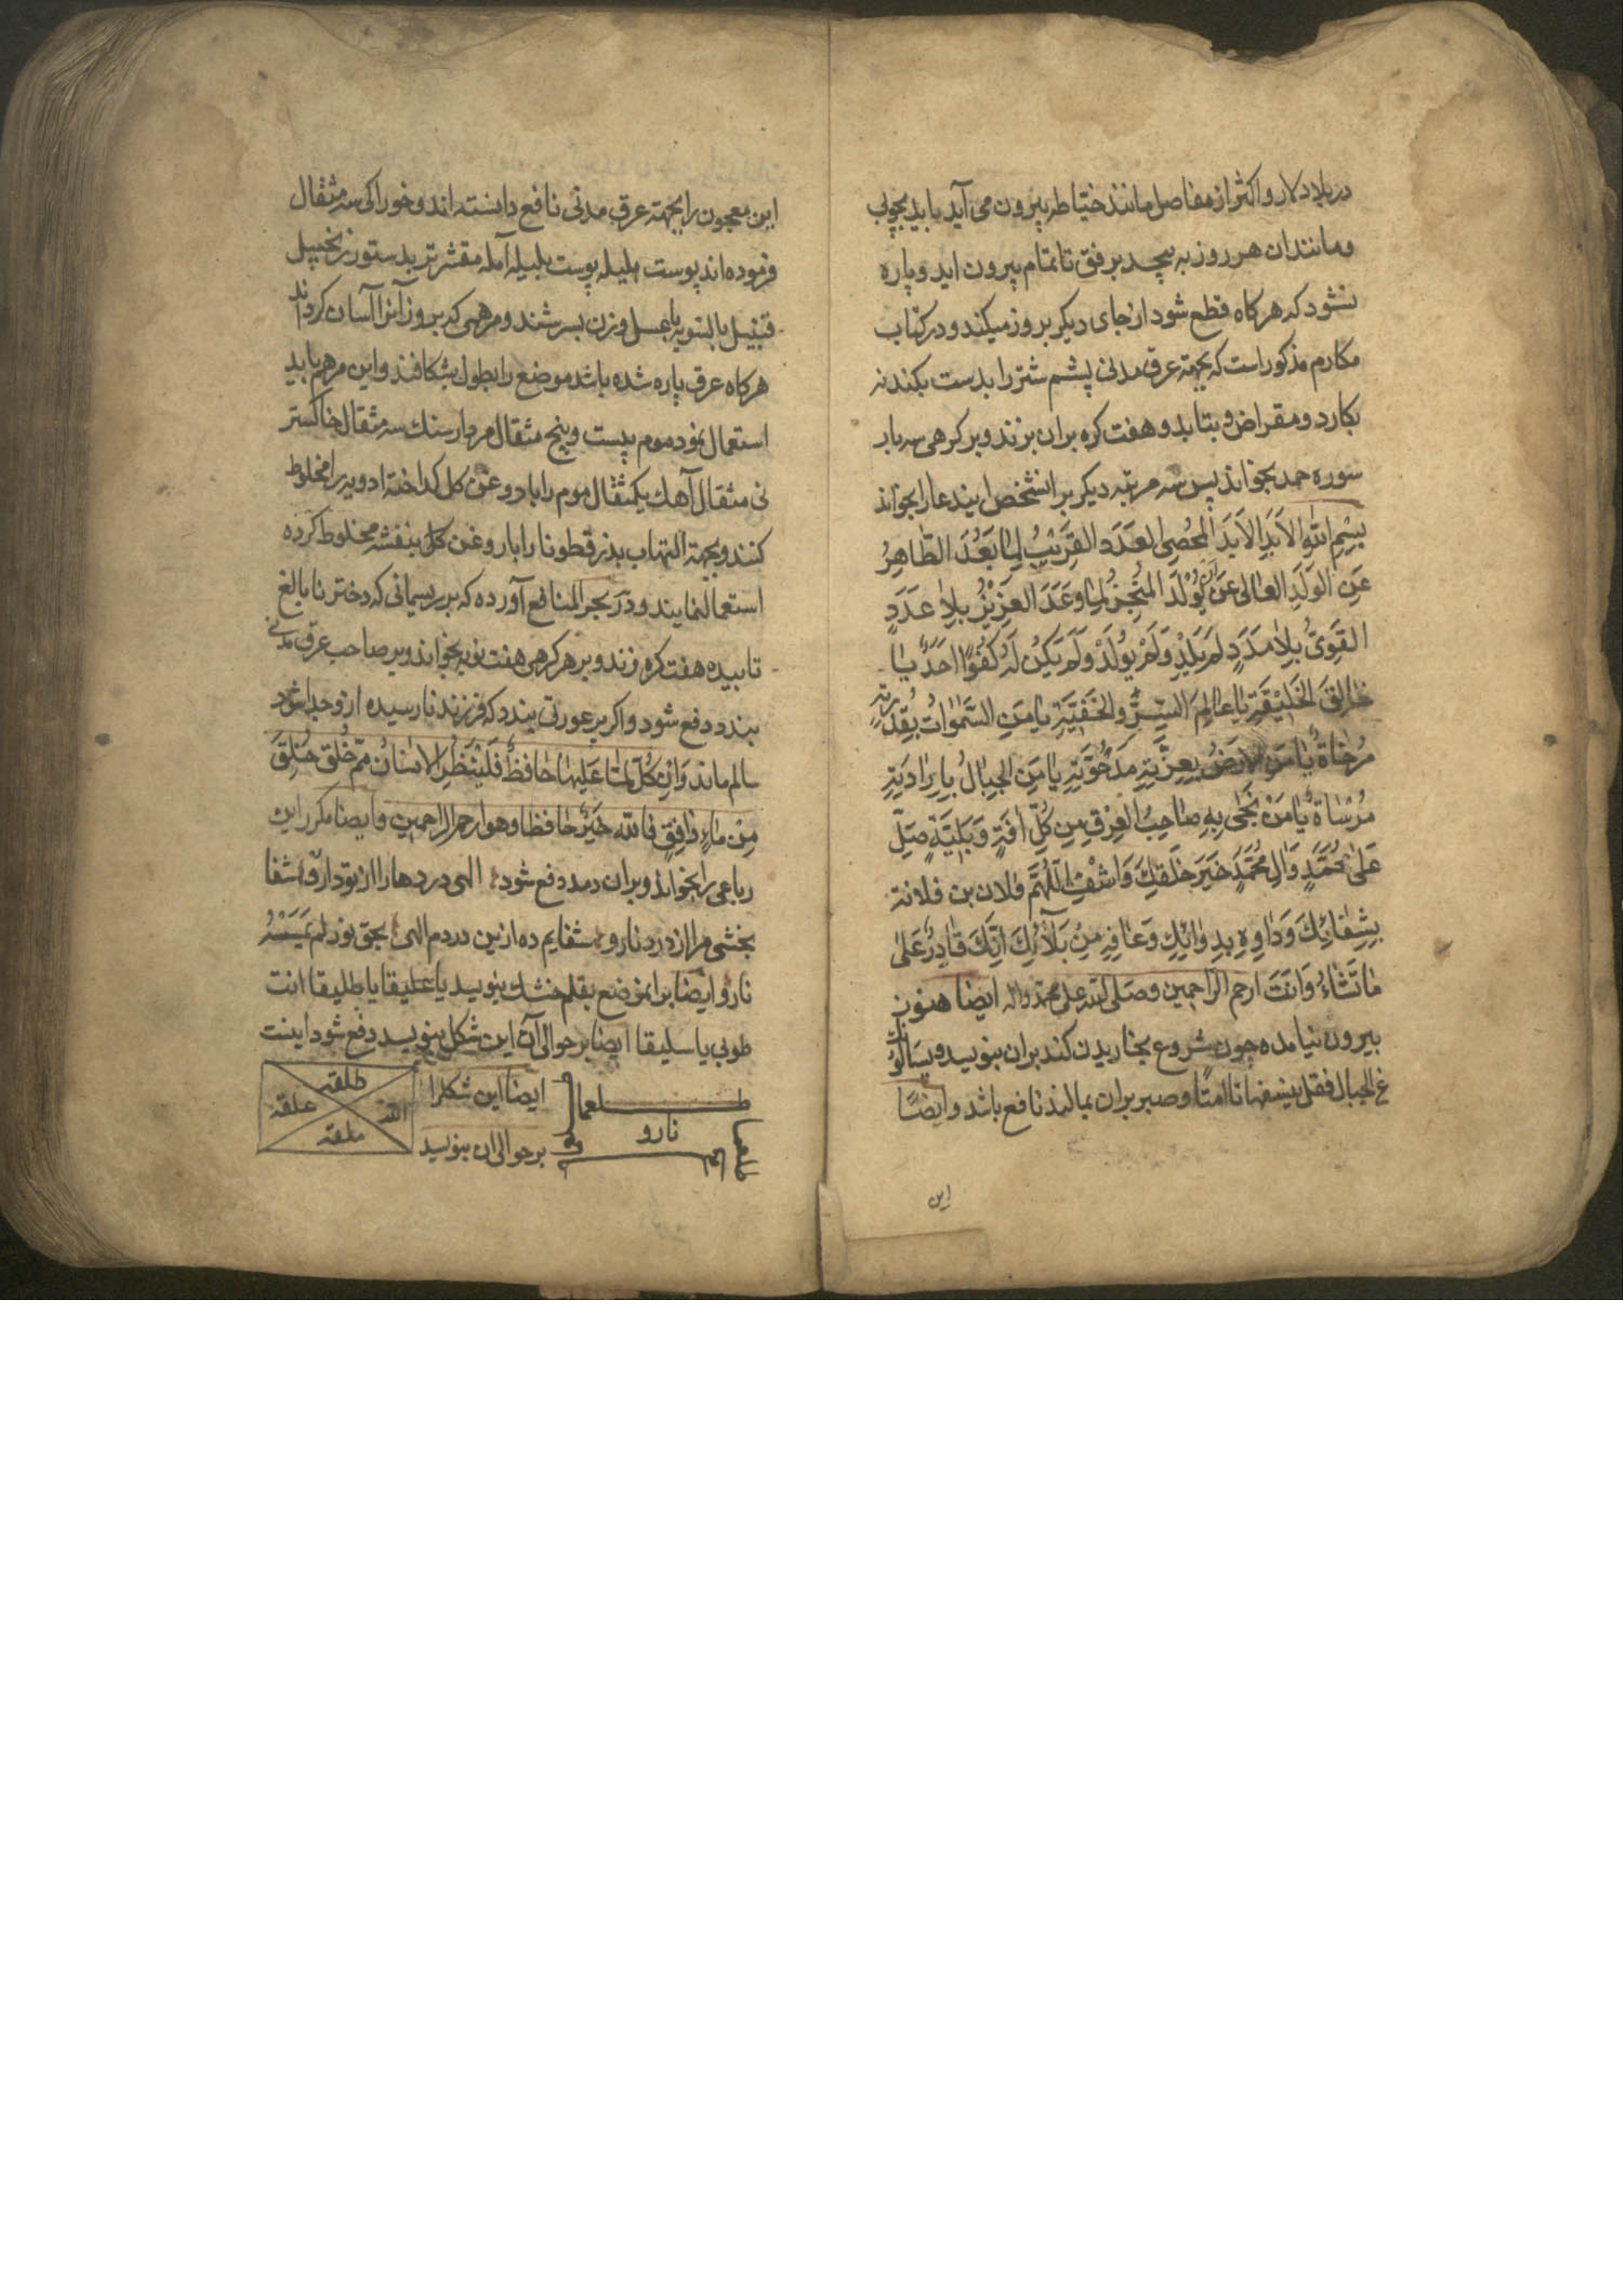 در بلاد لار و اکثر از مفاصل مانند خیاطه بیرون می آید باید بچوبی
و مانند ان هر روز به پیچد برفق تا تمام بیرون اید و پاره
نشود که هر کاه قطع شود از جای دیکر بروز میکند و در کتاب
مکارم مذکور است که بجهة عرق مدنی پشم شتر را بدست بکند نه
بکارد و مقراض و بتابد و هفت کره بران بزند و بر کرهی سه بار
سوره حمد بخواند پس سه مرتبه دیکر بر انشخص این دعا را بخواند
بِسْمِ اللهِ الاَبَدِ الاَبَدَ المُحْصِی العَدَد القَرِیْبُ لِمٰا بَعُدَ الطّاهِرُ
عَنِ الوَلَدِ العٰالی عَن اَن یُوْلَدَ المُنْجِزُ لِمٰا وَعَدَ العَزِیْزُ بِلاٰ عَدَدٍ
القَوِیُّ بِلاٰ مَدَدٍ لَمْ یَلِدْ وَلَمْ یُولَدْ وَلَمْ یَکُنْ لَهُ کُفُوًا اَحَدٌ یٰا
خٰالِقَ الخَلِیْقَةِ یٰا عٰالِمَ السِّرِّ وَالخَفِیَّةِ یٰا مَنِ السَّمٰوٰاتُ بِقُدْرَتِهِ
مُرْخٰاةٌ یٰا مَنِ الاَرْضُ بِعِزَّتِهِ مَدْحُوَّةٌ یٰا مَنِ الجِبٰالُ بِاِرٰادَتِهِ
مُرْسٰاةٌ یٰا مَنْ نَجٰی بِهِ صٰاحِبُ الغَرَقِ مِن کُلِّ اٰفَةٍ وَبَلِیَّةٍ صَلِّ
عَلیٰ مُحَمَّدٍ وَاٰلِ مُحَمَّدٍ خَیْرِ خَلْقِكَ وَاشْفِ اللّهُمَّ فلان بن فلانة
بِشِفٰائِكَ وَدٰاوِهِ بِدِوٰائِكَ وَعٰافِهِ مِنْ بَلاٰئِكَ اِنَّكَ قٰادِرٌ عَلیٰ
مٰا تَشٰاءُ وَاَنْتَ ارحم الرّاحمین وصلی الله علی محمد واله ایضا هنوز
بیرون نیامده چون شروع بخاریدن کند بران بنویسد ویسالونك
ع الجبال فقل ینسفها تا امتا و صبر بران بمالند نافع باشد و ایضًا
این
این معجون را بجهة عرق مدنی نافع دانسته اند و خوراکی سه مثقال
فرموده اند پوست هلیله پوست بلیله آمله مقشر تربد ستور زنجبیل
قنبیل بالسویه با عسل وزن بسرشند و مرهمی که بروز آنرا آسان کرداند
هر کاه عرق پاره شده باشد موضع را بطول بشکافند و این مرهم باید
استعمال نمود موم بیست و پنج مثقال مردارسنك سه مثقال خاکستر
نی مثقال آهك یکمثقال موم را با روغن کل کداخته ادویه را مخلوط
کنند و بجهة التهاب بذر قطونا را با روغن کل بنفشه مخلوط کرده
استعمال نمایند و در بحر المنافع آورده که بر ریسمانی که دختر نابالغ
تابیده هفت کره زند و بر هر کرهی هفت نوبه بخواند و بر صاحب عرق مدنی
بندد دفع شود و اکر بر عورتی بندد که فرزند نارسیده ازو جدا شود
سالم ماند وَاِنْ کُلُّ لَمّٰا عَلَیهٰا حٰافِظٌ فَلْیَنْظُرِ الاِنْسٰانُ مِمَّ خُلِقَ خُلِقَ
مِنْ مٰاءٍ دٰافِقٍ فالله خَیْرٌ حافظا وهو ارحم الراحمین و ایضا مکرر این
رباعی را بخواند و بران دمد دفع شود الهی دردها را از تو دارو شفا
بخشی مرا از درد نارو شفایم ده ازین دردم الهی بحق نور لم یَمْسَسْهُ
نارو ایضا بر انموضع بقلم خشك بنویسد یا علیقا یا طلیقا انت
طوبی یا سلیقا ایضا بر حوالی آن این شکل بنویسد دفع شود اینست
ایضا این شکل را
بر حوالی ان بنویسد
نارو
طلقه
علقه
ملقه